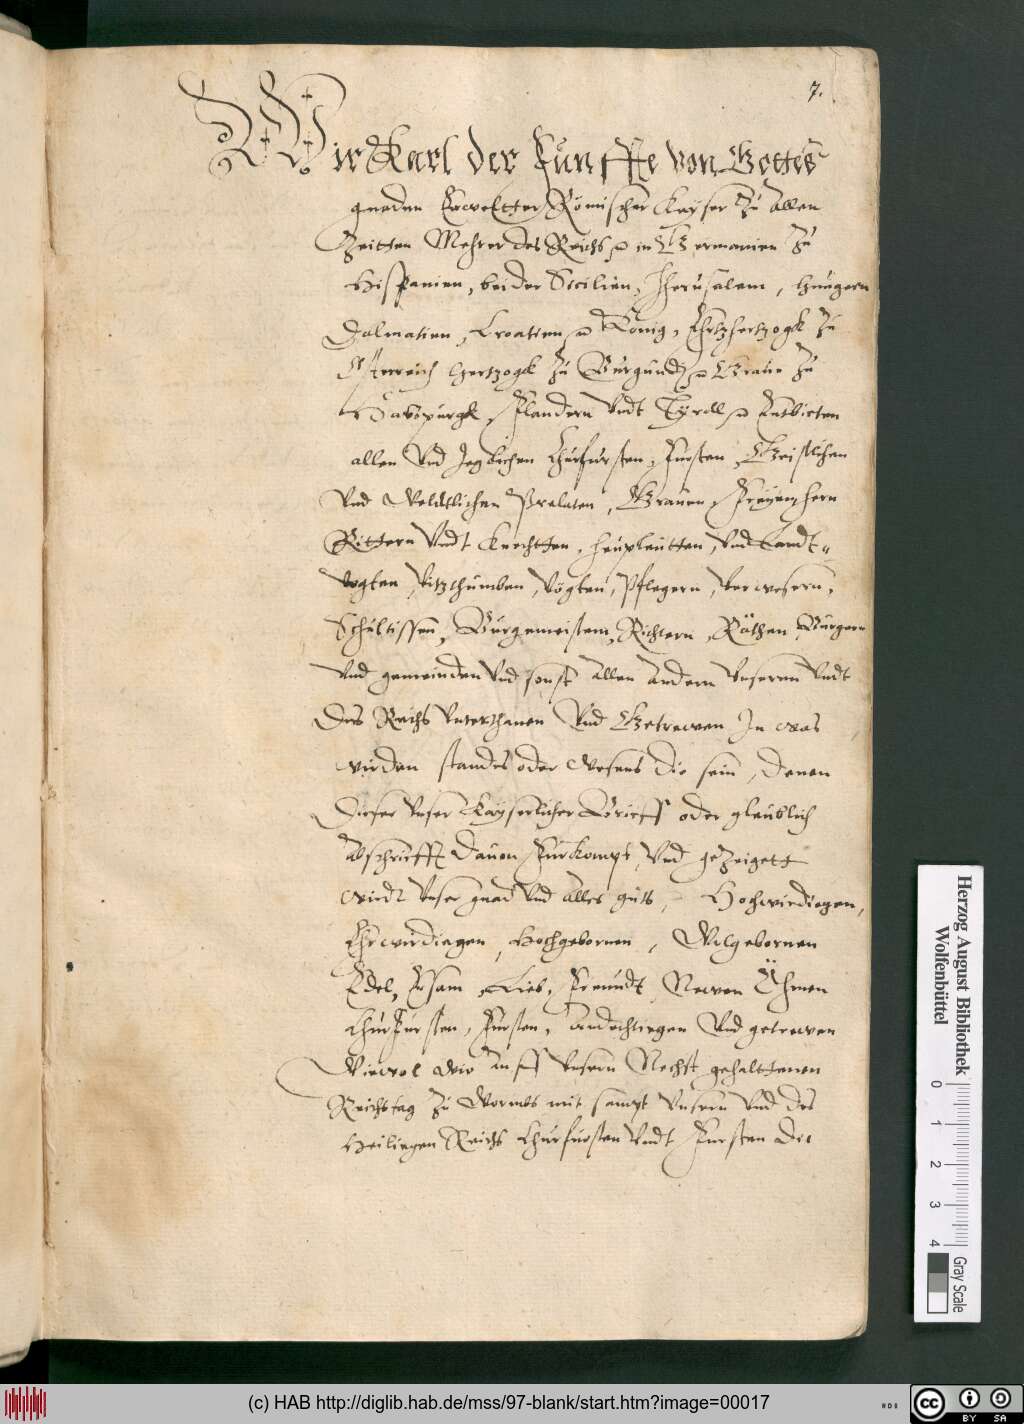 7.
Wir Karl der Funffte von Gottes
gnaden Erweltter Römischer Kayser zu allen
Zeitten Mehrer des Reichs in Germanien zu
Hispanien, beider Sicilien, Jherusalem, Hungern
Dalmatien, Croatien König, Ertzhertzogk zu
Osterreich Hertzogk zu Burgundj Graue zu
Habspurgk, Flandern Undt Tyroll Entbieten
allen Und Jeglichen Churfursten, Fursten, Geistlichen
Und Weldtlichen Prelaten, Grauen, Freyenhern
Rittern Undt Knechtten, heuptleutten, Und Landt-
vogten, Vitzthumben, Vögten, Pflegern, Verwesern,
Schultissen, Burgemeistern, Richtern, Räthen, Burgern
Und gemeinden Und sonst allen andern Unsernn Undt
Des Reichs Unterthanen Und Getrewen In was
wirden standes oder Wesens die sein, denen
Dieser Unser Kayserlicher Brieff oder gleublich
abschriefft dauon Furkompt, Und gezeigett
wirdt Unser gnad Und alles guts, Hochwirdiegen,
Ehrwirdiegen, Hochgebornen, Wolgebornen
Edel, Ersam, Lieb, Freundt, Newen Öhmen
Churfursten, Fursten, andechtiegen Und getrewen
Wiewol Wir auff Unsern Nechst gehalttenen
Reichstag zu Wormbs mit sampt Unsern Und des
Heiligen Reichs Churfursten Undt Fursten die
Herzog August Bibliothek
Wolfenbüttel
0 1 2 3 4
Gray Scale
(c) HAB http://diglib.hab.de/mss/97-blank/start.htm?image=00017
cc BY SA